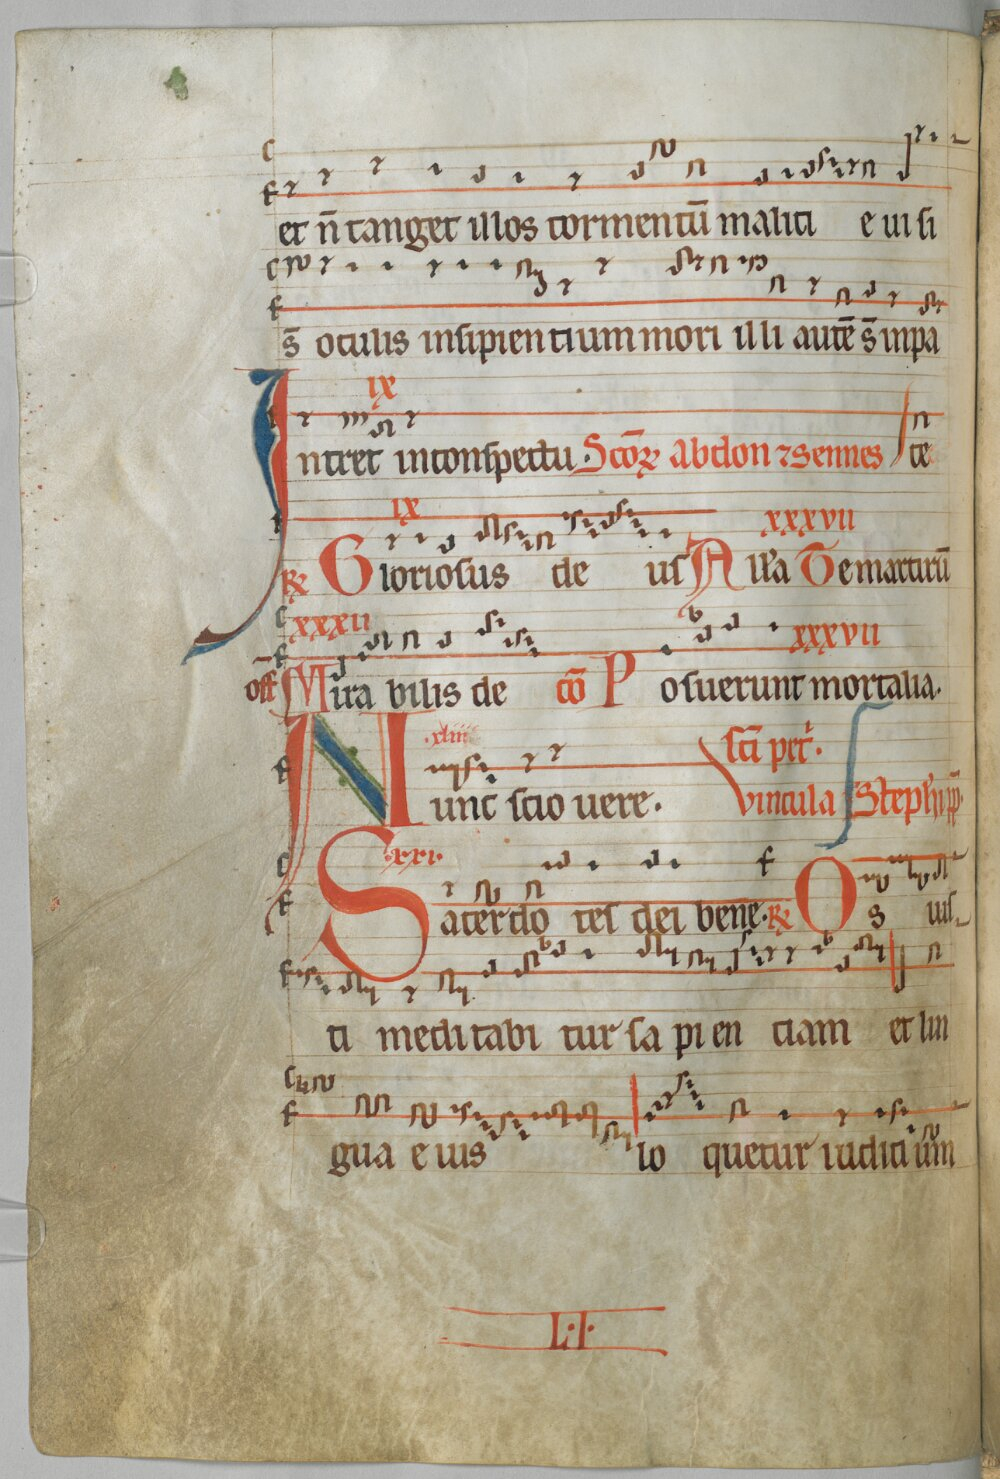 et n̄ tanget illos tormentū maliti e ui si
s̄ oculis insipientium mori illi autē s̄ inpa
ix
Intret inconspectu. Scōꝝ abdon ⁊ sennes ce
ix xxxvii
℟ Gloriosus de us All'a Te martirū
xxxii xxxvii
off Mira bilis de cō Posuerunt mortalia.
.xliii. scī petri.
Nunc scio uere. vincula Stephi pp̄.
.xxi.
Sacerdo tes dei bene. ℟ Os uis
ti meditabi tur sa pi en ciam et lin
gua e ius lo quetur iudicium
L.I.